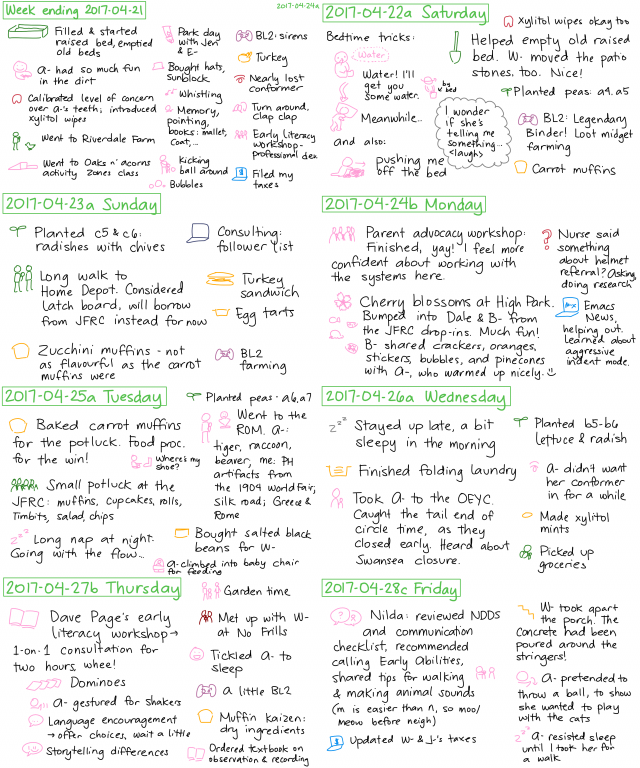 Week ending 2017-04-21
2017-04-24a
Filled & started
raised bed, emptied
old beds
A- had so much fun
in the dirt
Calibrated level of concern
over A-'s teeth; introduced
xylitol wipes
Went to Riverdale Farm
Went to Oaks n' acorns
activity zones class
Park day
with Jen &
E-
Bought hats,
Sunblock
Whistling
Memory,
pointing,
books: mallet,
Coat,...
Kicking
ball around
Bubbles
BL2: sirens
Turkey
Nearly lost
conformer
Turn around,
clap clap
Early literacy
workshop-
professional dev
Filed my
taxes
2017-04-22a Saturday
Bedtime tricks:
Water
Water! I'll
get you
some water.
by bed
Meanwhile...
and also:
pushing me
off the bed
I wonder
if she's
telling me
something...
<laugh>
Xylitol wipes okay too
Helped empty old raised
bed. W- moved the patio
stones, too. Nice!
Planted peas: a4, a5
BL2: Legendary
Binder! Loot midget
farming
Carrot muffins
2017-04-23a Sunday
Planted c5 & c6:
radishes with chives
Long walk to
Home Depot. Considered
Latch board, will borrow
from JFRC instead for now
Zucchini muffins - not
as flavourful as the carrot
muffins were
Consulting:
follower list
Turkey
sandwich
Egg tarts
BL2
farming
2017-04-24b Monday
Parent advocacy workshop:
Finished, yay! I feel more
confident about working with
the systems here.
Cherry blossoms at High Park.
Bumped into Dale & B- from
the JFRC drop-ins. Much fun!
B- shared crackers, oranges,
stickers, bubbles, and pinecones
with A-, who warmed up nicely.
Nurse said
something
about helmet
referral? Asking,
doing research
Emacs
News,
helping out.
Learned about
aggressive
indent mode.
2017-04-25a Tuesday
Baked carrot muffins
for the potluck. Food proc.
for the win!
Where's my
shoe?
Small potluck at the
JFRC: muffins, cupcakes, rolls,
Timbits, salad, chips
zzz
Long nap at night.
Going with the flow...
Planted peas - a6, a7
Went to the
ROM. A-:
tiger, raccoon,
beaver; me: PH
artifacts from
the 1904 World Fair;
Silk road; Greece &
Rome
Bought salted black
beans for W-
A- climbed into baby chair
for feeding
2017-04-26a Wednesday
zzz
Stayed up late, a bit
sleepy in the morning
Finished folding laundry
Took A- to the OEYC.
Caught the tail end of
circle time, as they
closed early. Heard about
Swansea closure.
Planted b5-b6
lettuce & radish
A- didn't want
her conformer
in for a while
Made xylitol
mints
Picked up
groceries
2017-04-27b Thursday
Dave Page's early
literacy workshop →
1-on-1 consultation for
two hours, whee!
Dominoes
A- gestured for shakers
Language encouragement
→ offer choices, wait a little
Storytelling differences
Garden time
Met up with W-
at No Frills
Tickled A- to
sleep
a little BL2
Muffin kaizen:
dry ingredients
Ordered textbook on
observation & recording
2017-04-28c Friday
Nilda: reviewed NDDS
and communication
checklist, recommended
calling Early Abilities,
shared tips for walking
& making animal sounds
(m is easier than n, so moo/
meow before neigh)
Updated W- & J-'s taxes
W- took apart
the porch. The
Concrete had been
poured around the
stringers!
A- pretended to
throw a ball, to show
she wanted to play
with the cats
zzz
A- resisted sleep
until I took her for
a walk